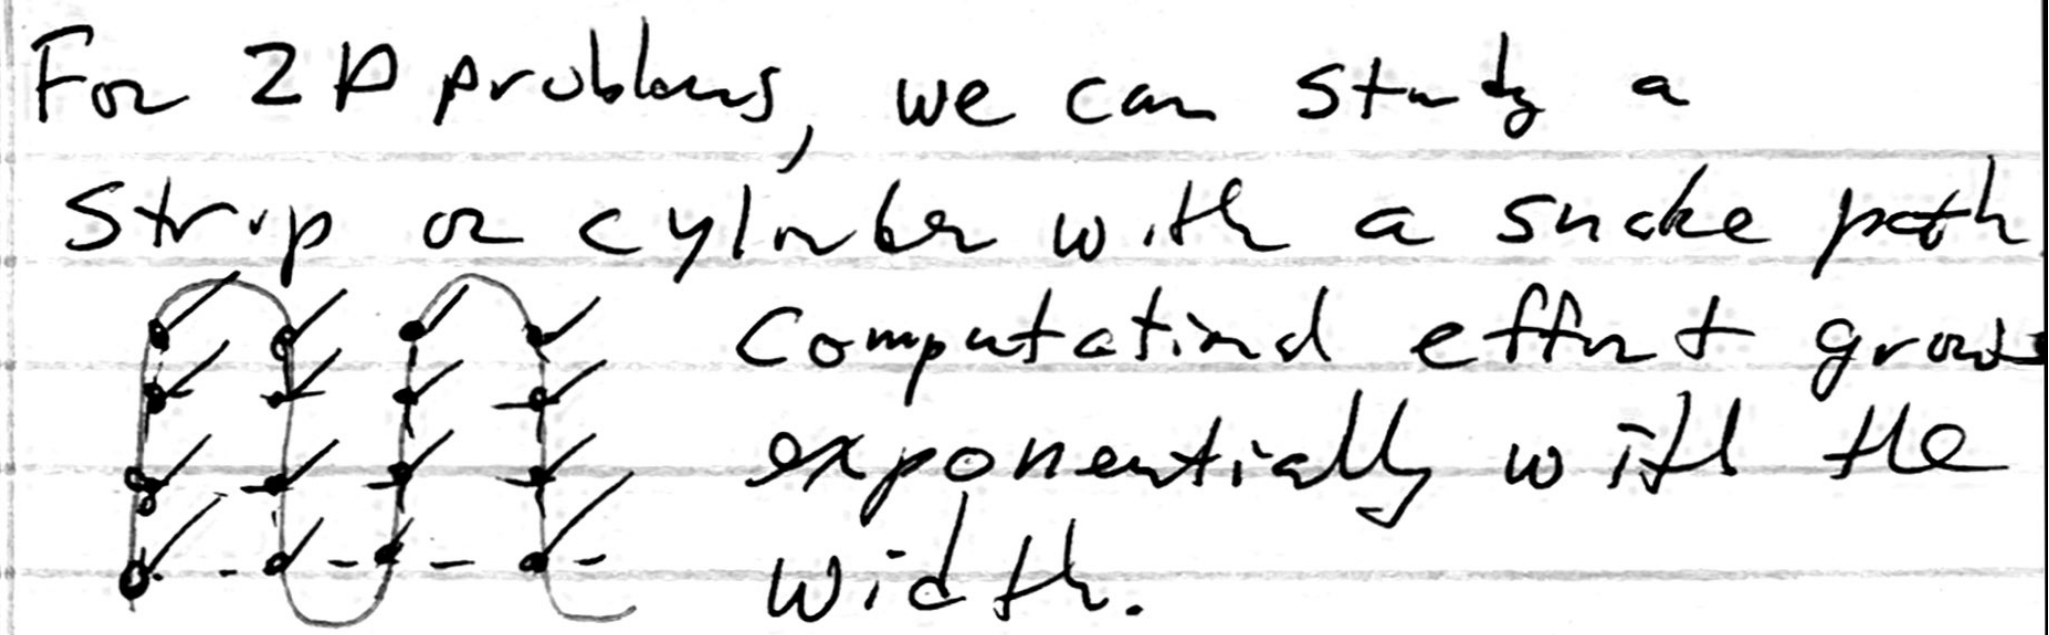 For 2D problems, we can study a
strip or cylinder with a snake path
Computational effort grows
exponentially with the
width.